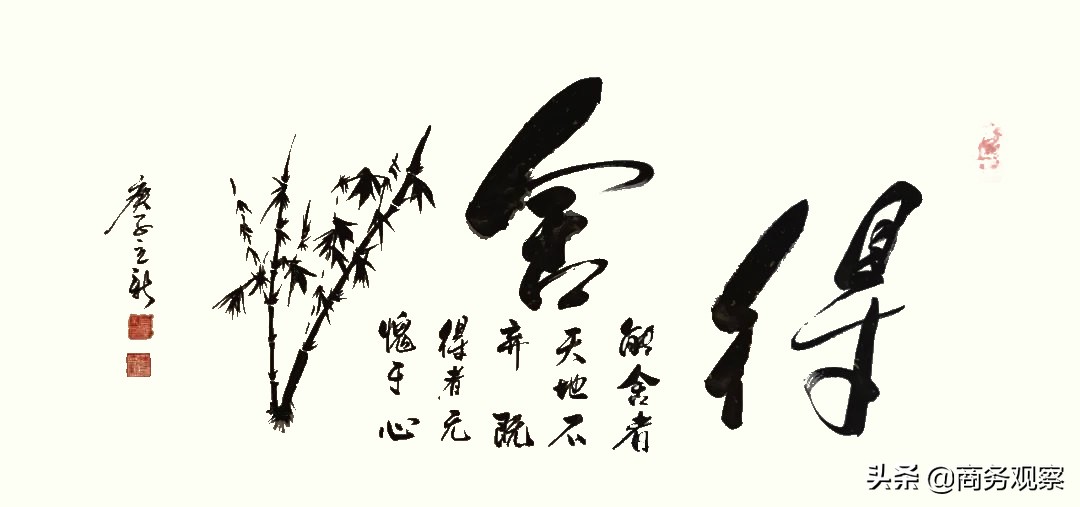 得
舍
能舍者
天地不
弃既
得者无
愧于心
庚子
头条 @商务观察